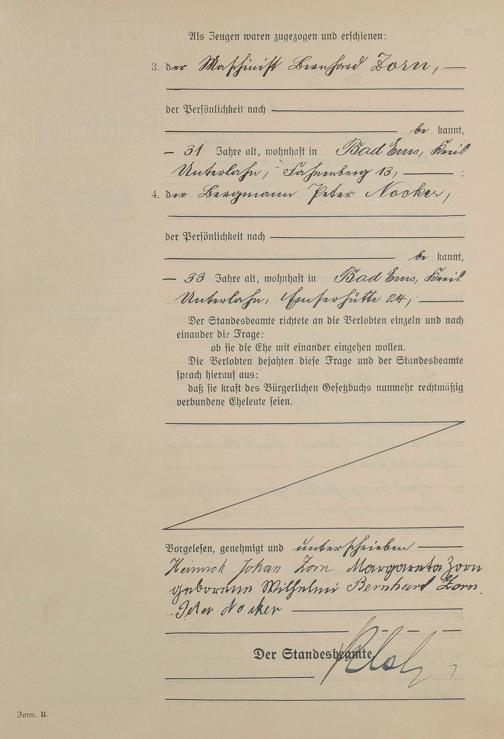 Als Zeugen waren zugezogen und erschienen:
3. der Maschinist Bernhard Zorn,
der Persönlichkeit nach
be kannt,
31 Jahre alt, wohnhaft in Bad Ems, Kreis
Unterlahn, Fahnenberg 13, ;
4. der Bergmann Peter Nocker,
der Persönlichkeit nach
be kannt,
33 Jahre alt, wohnhaft in Bad Ems, Kreis
Unterlahn, Emserhütte 24,
Der Standesbeamte richtete an die Verlobten einzeln und nach
einander die Frage:
ob sie die Ehe mit einander eingehen wollen.
Die Verlobten bejahten diese Frage und der Standesbeamte
sprach hierauf aus:
daß sie kraft des Bürgerlichen Gesetzbuchs nunmehr rechtmäßig
verbundene Eheleute seien.
Vorgelesen, genehmigt und unterschrieben
Heinrich Johan Zorn Margareta Zorn
geborene Wilhelmi Bernhard Zorn
Peter Nocker
Der Standesbeamte
Form. B.